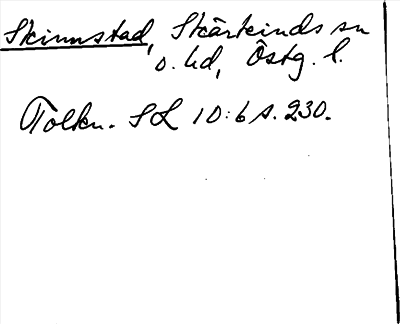 Skinnstad, Skärkinds sn
o. hd, Östg. l.
Tolkn. SL 10:6 s. 230.